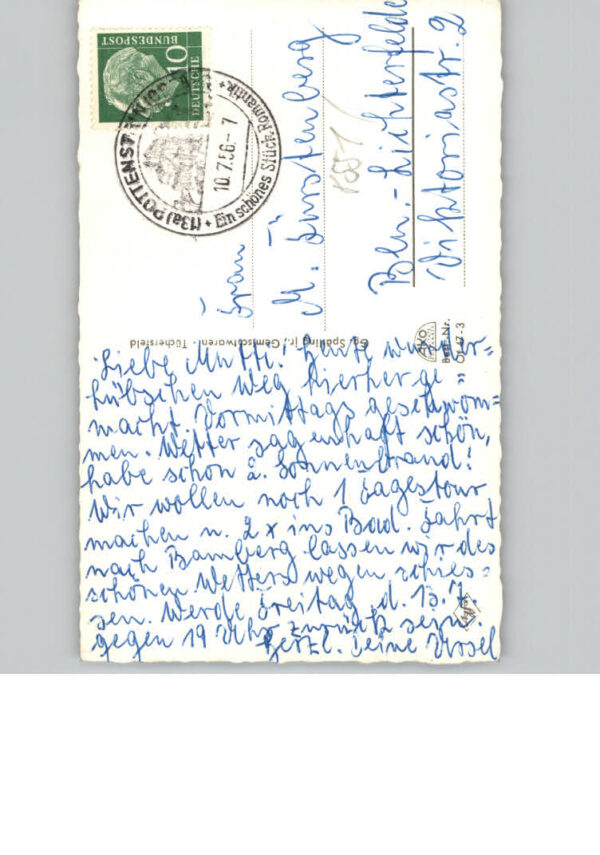 DEUTSCHE
BUNDESPOST
10
(13a) POTTENSTEIN
10.7.56.-7
+ Ein schönes Stück Romantik +
Frau
M. Fürstenberg
Bln.-Lichterfelde
Viktoriastr. 2
1551
Gg. Spärling jr., Gemischtwaren - Tüchersfeld
AKO
Best.-Nr.
Liebe Mutti! Heute wunder-
hübschen Weg hierher ge=
macht. Vormittags geschwom=
men. Wetter sagenhaft schön,
habe schon 2. Sonnenbrand!
Wir wollen noch 1 Tagestour
machen u. 2x ins Bad. Fahrt
nach Bamberg lassen wir des
schönen Wetters wegen schies=
sen. Werde Freitag d. 13.7.
gegen 19 Uhr zurück sein.
Herzl. Deine Ursel